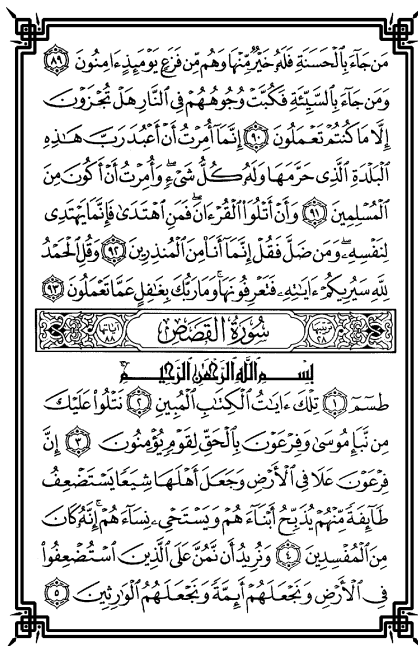 مَن جَآءَ بِٱلْحَسَنَةِ فَلَهُۥ خَيْرٌ مِّنْهَا وَهُم مِّن فَزَعٍ يَوْمَئِذٍ ءَامِنُونَ ٨٩
وَمَن جَآءَ بِٱلسَّيِّئَةِ فَكُبَّتْ وُجُوهُهُمْ فِى ٱلنَّارِ هَلْ تُجْزَوْنَ
إِلَّا مَا كُنتُمْ تَعْمَلُونَ ٩٠ إِنَّمَآ أُمِرْتُ أَنْ أَعْبُدَ رَبَّ هَـٰذِهِ
ٱلْبَلْدَةِ ٱلَّذِى حَرَّمَهَا وَلَهُۥ كُلُّ شَىْءٍ وَأُمِرْتُ أَنْ أَكُونَ مِنَ
ٱلْمُسْلِمِينَ ٩١ وَأَنْ أَتْلُوَا۟ ٱلْقُرْءَانَ فَمَنِ ٱهْتَدَىٰ فَإِنَّمَا يَهْتَدِى
لِنَفْسِهِۦ وَمَن ضَلَّ فَقُلْ إِنَّمَآ أَنَا۠ مِنَ ٱلْمُنذِرِينَ ٩٢ وَقُلِ ٱلْحَمْدُ
لِلَّهِ سَيُرِيكُمْ ءَايَـٰتِهِۦ فَتَعْرِفُونَهَا وَمَا رَبُّكَ بِغَـٰفِلٍ عَمَّا تَعْمَلُونَ ٩٣
ترتيبها ٢٨ سُورَةُ القَصَصِ آياتها ٨٨
بِسْمِ ٱللَّهِ ٱلرَّحْمَـٰنِ ٱلرَّحِيمِ
طسٓمٓ ١ تِلْكَ ءَايَـٰتُ ٱلْكِتَـٰبِ ٱلْمُبِينِ ٢ نَتْلُوا۟ عَلَيْكَ
مِن نَّبَإِ مُوسَىٰ وَفِرْعَوْنَ بِٱلْحَقِّ لِقَوْمٍ يُؤْمِنُونَ ٣ إِنَّ
فِرْعَوْنَ عَلَا فِى ٱلْأَرْضِ وَجَعَلَ أَهْلَهَا شِيَعًا يَسْتَضْعِفُ
طَآئِفَةً مِّنْهُمْ يُذَبِّحُ أَبْنَآءَهُمْ وَيَسْتَحْىِۦ نِسَآءَهُمْ إِنَّهُۥ كَانَ
مِنَ ٱلْمُفْسِدِينَ ٤ وَنُرِيدُ أَن نَّمُنَّ عَلَى ٱلَّذِينَ ٱسْتُضْعِفُوا۟
فِى ٱلْأَرْضِ وَنَجْعَلَهُمْ أَئِمَّةً وَنَجْعَلَهُمُ ٱلْوَٰرِثِينَ ٥